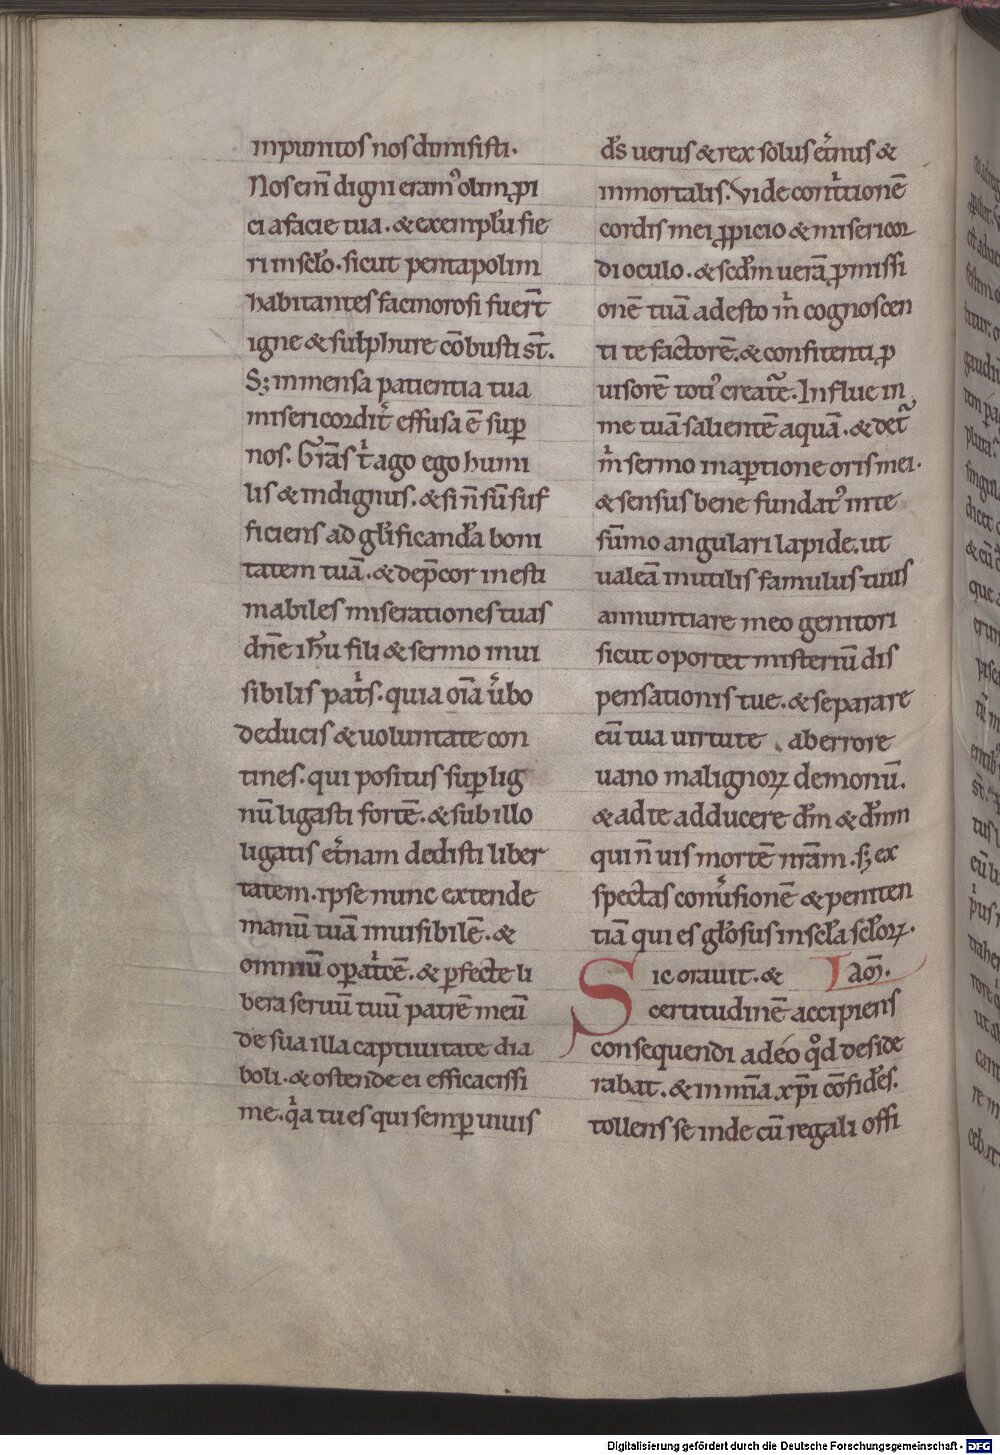 inpunitos nos dimisisti.
Nos eni̅ digni eramꝰ olim ꝓi
ci a facie tua. & exemplu̅ fie
ri in sc̅lo. sicut pentapolim
habitantes facinorosi fuer̅t
igne & sulphure co̅busti st̅.
Sꝫ inmensa patientia tua
misericordit᷑ effusa e̅ sup̲
nos. Gr̅as t͛ ago ego humi
lis & indignus. & si n̅ su̅ suf
ficiens ad gl̅ificanda̅ boni
tatem tua̅. & dep̅cor inesti
mabiles miserationes tuas
dn̅e ih̅u fili & sermo inui
sibilis pat͛s. quia oi̅a u͛bo
deducis & uoluntate con
tines. qui positus sup̲ lig
nu̅ ligasti forte̅. & sub illo
ligatis et͛nam dedisti liber
tatem. ipse nunc extende
manu̅ tua̅ inuisibile̅. &
omniu̅ op̲at͛ce̅. & p̲fecte li
bera seruu̅ tuu̅ patre̅ meu̅
de sua illa captiuitate dia
boli. & ostende ei efficacissi
me. qͣa tu es qui semp̲ uiuis
ds̅ uerus & rex solus et͛nus &
inmortalis. Vide cont͛tione̅
cordis mei ꝓpicio & misericor
di oculo. & scd̅m uera̅ ꝓmissi
one̅ tua̅ adesto m͛ cognoscen
ti te factore̅. & confitenti ꝓ
uisore̅ totiꝰ creat᷑e̅. Influe in
me tua̅ saliente̅ aqua̅. & det᷑
m͛ sermo in ap̲tione oris mei.
& sensus bene fundatꝰ in te
su̅mo angulari lapide. ut
ualea̅ inutilis famulus tuus
annuntiare meo genitori
sicut oportet misteriu̅ dis
pensationis tue. & separare
eu̅ tua uirtute ab errore
uano malignoꝝ demonu̅.
& ad te adducere dm̅ & dn̅m
qui n̅ uis morte̅ nr̅am. sꝫ ex
spectas conu͛sione̅ & peniten
tia̅ qui es gl̅osus in sc̅la sc̅loꝝ.
Sic orauit. & Iao̅.
certitudine̅ accipiens
consequendi a deo qͦd deside
rabat. & in mi̅a xp̅i co̅fide̅s.
tollens se inde cu̅ regali offi